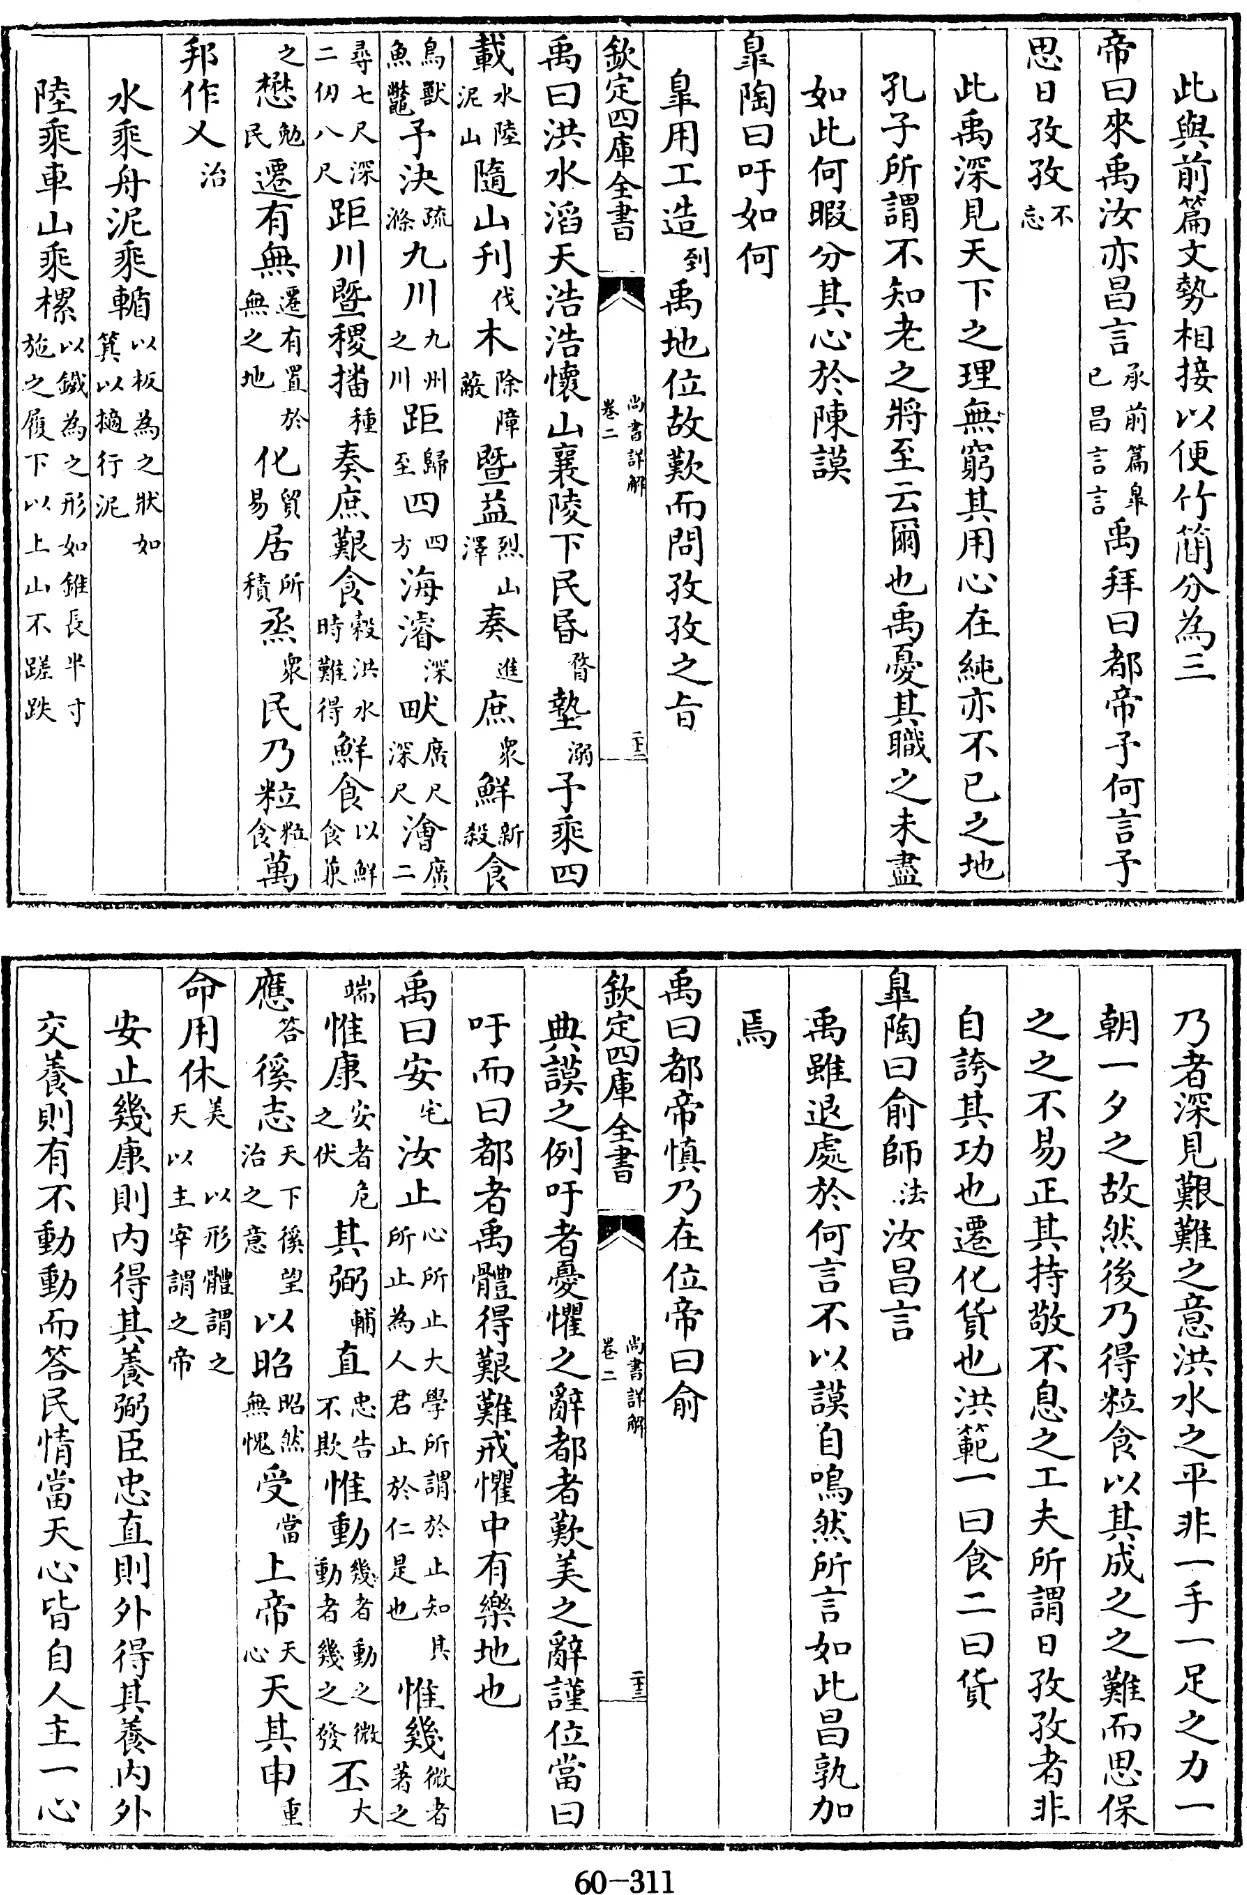 此與前篇文勢相接以便竹簡分為三
帝曰來禹汝亦昌言承前篇臯已昌言言禹拜曰都帝予何言予
思日孜孜不忘
此禹深見天下之理無窮其用心在純亦不已之地
孔子所謂不知老之將至云爾也禹憂其職之未盡
如此何暇分其心於陳謨
臯陶曰吁如何
臯用工造到禹地位故歎而問孜孜之旨
欽定四庫全書 尚書詳解卷二 二十二
禹曰洪水滔天浩浩懷山襄陵下民昏瞀墊溺予乘四
載水陸泥山隨山刊伐木除障蔽暨益烈山澤奏進庶衆鮮新殺食
鳥獸魚鼈予決疏滌九川九州之川距歸至四四方海濬深畎廣尺深尺澮廣二
尋七尺深二仞八尺距川暨稷播種奏庶艱食穀洪水時難得鮮食以鮮食萊
之懋勉民遷有無遷有置於無之地化貿易居所積烝衆民乃粒粒食萬
邦作乂治
水乘舟泥乘輴以板為之狀如箕以擿行泥
陸乘車山乘樏以鐵為之形如錐長半寸施之履下以上山不蹉跌
乃者深見艱難之意洪水之平非一手一足之力一
朝一夕之故然後乃得粒食以其成之之難而思保
之之不易正其持敬不息之工夫所謂日孜孜者非
自誇其功也遷化貨也洪範一曰食二曰貨
臯陶曰俞師法汝昌言
禹雖退處於何言不以謨自鳴然所言如此昌孰加
焉
禹曰都帝慎乃在位帝曰俞
欽定四庫全書 尚書詳解卷二 二十三
典謨之例吁者憂懼之辭都者歎美之辭謹位當曰
吁而曰都者禹體得艱難戒懼中有樂地也
禹曰安宅汝止心所止大學所謂於止知其所止為人君止於仁是也惟幾微者著之
端惟康安者危之伏其弼輔直忠告不欺惟動幾者動之微動者幾之發丕大
應答徯志天下徯望治之意以昭昭然無愧受當上帝天心天其申重
命用休美以形體謂之天以主宰謂之帝
安止幾康則内得其養弼臣忠直則外得其養内外
交養則有不動動而答民情當天心皆自人主一心
60-311